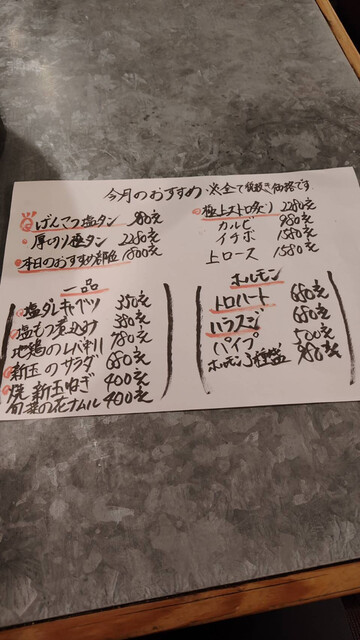 今月のおすすめ ※全て税抜き価格です
げんこつ塩タン 980円
厚切り塩タン 2280円
本日のおすすめ赤身 1800円
極上ストロ炙り 2280円
カルビ 980円
イチボ 1580円
上ロース 1580円
一品
塩ダレキャベツ 350円
塩もつ煮込み 380円
地鶏のレバ刺 780円
新玉のサラダ 680円
焼新玉ねぎ 400円
旬菜の花ナムル 400円
ホルモン
トロハート 680円
ハラスジ 680円
パイプ 500円
ホルモン3種盛 980円